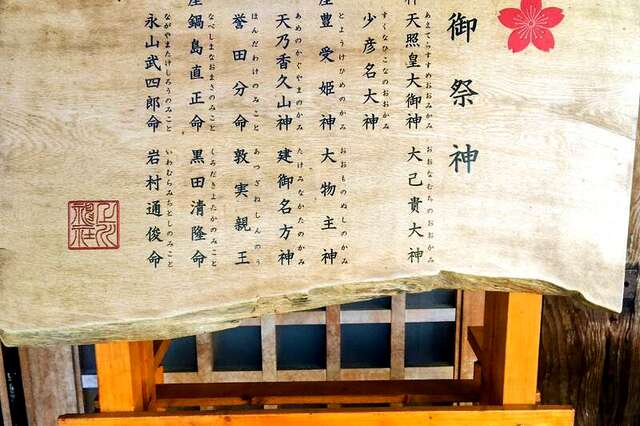 御祭神
あまてらすすめおおみかみ おおなむちのおおかみ
天照皇大御神 大己貴大神
すくなひこなのおおかみ
少彦名大神
とようけひめのかみ おおものぬしのかみ
豊受姫神 大物主神
あめのかぐやまのかみ たけみなかたのかみ
天乃香久山神 建御名方神
ほんだわけのみこと あつざねしんのう
誉田分命 敦実親王
なべしまなおまさのみこと くろだきよたかのみこと
鍋島直正命 黒田清隆命
ながやまたけしろうのみこと いわむらみちとしのみこと
永山武四郎命 岩村通俊命
上川